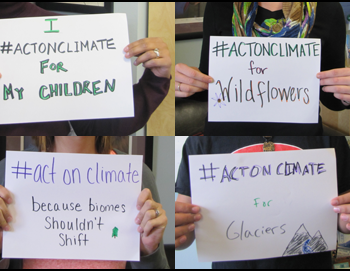 I
#ACTONCLIMATE
FOR
MY CHILDREN
#ACTONCLIMATE
for
Wildflowers
#act on climate
because biomes
Shouldn't
Shift
#ACT ON CLIMATE
For
Glaciers